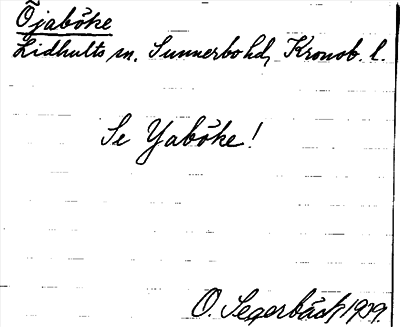 Öjaböke
Lidhults sn. Sunnerbo hd, Kronob. l.
Se Yaböke!
O. Segerbäck 1909.